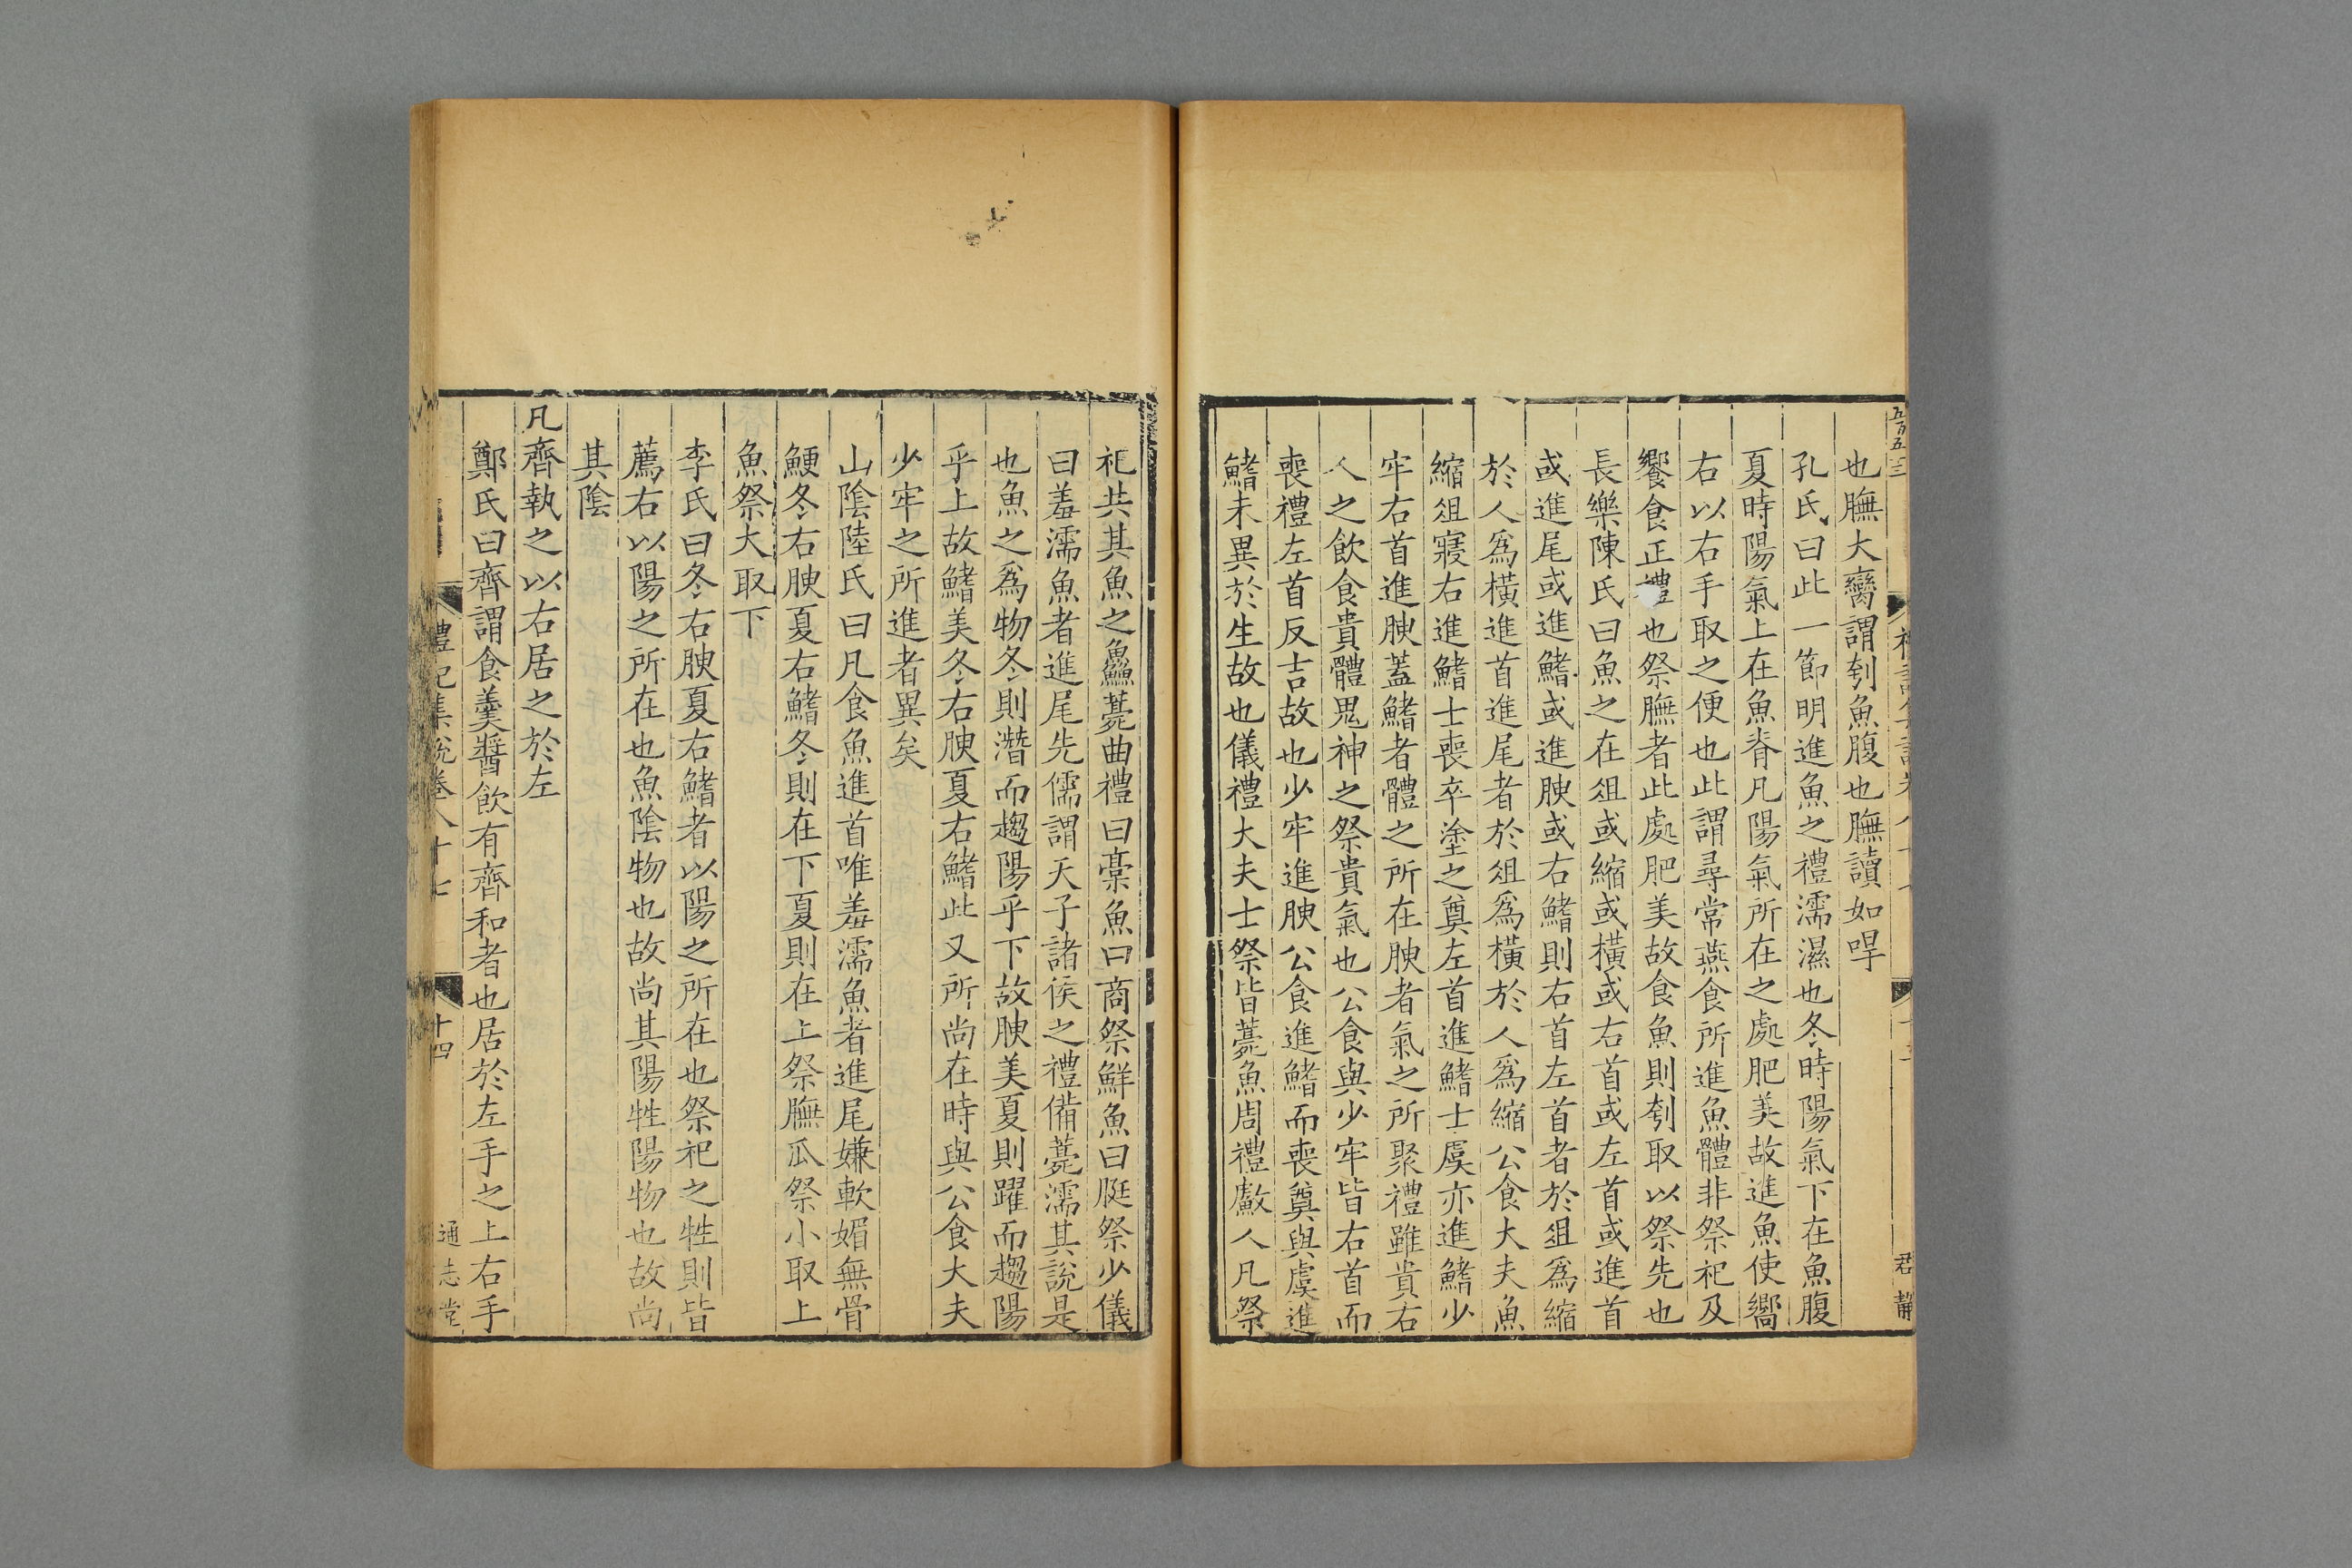 五百五三
也膴大臠謂刳魚腹也膴讀如哻
孔氏曰此一節明進魚之禮濡濕也冬時陽氣下在魚腹
夏時陽氣上在魚脊凡陽氣所在之處肥美故進魚使嚮
右以右手取之便也此謂尋常燕食所進魚體非祭祀及
饗食正禮也祭膴者此處肥美故食魚則刳取以祭先也
長樂陳氏曰魚之在俎或縮或橫或右首或左首或進首
或進尾或進鰭或進腴或右鰭則右首左首者於俎爲縮
於人爲橫進首進尾者於俎爲橫於人爲縮公食大夫魚
縮俎寢右進鰭士喪卒塗之奠左首進鰭士虞亦進鰭少
牢右首進腴蓋鰭者體之所在腴者氣之所聚禮雖貴右
人之飲食貴體鬼神之祭貴氣也公食與少牢皆右首而
喪禮左首反吉故也少牢進腴公食進鰭而喪奠與虞進
鰭未異於生故也儀禮大夫士祭皆薧魚周禮䱷人凡祭
君 靜
祀共其魚之鱻薧曲禮曰槀魚曰商祭鮮魚曰脡祭少儀
曰羞濡魚者進尾先儒謂天子諸侯之禮備薧濡其說是
也魚之爲物冬則潛而趨陽乎下故腴美夏則躍而趨陽
乎上故鰭美冬右腴夏右鰭此又所尚在時與公食大夫
少牢之所進者異矣
山陰陸氏曰凡食魚進首唯羞濡魚者進尾嫌軟媚無骨
鯁冬右腴夏右鰭冬則在下夏則在上祭膴瓜祭小取上
魚祭大取下
李氏曰冬右腴夏右鰭者以陽之所在也祭祀之牲則皆
薦右以陽之所在也魚陰物也故尚其陽牲陽物也故尚
其陰
凡齊執之以右居之於左
鄭氏曰齊謂食羹醬飲有齊和者也居於左手之上右手
禮記集說卷八十七 十四 通志堂